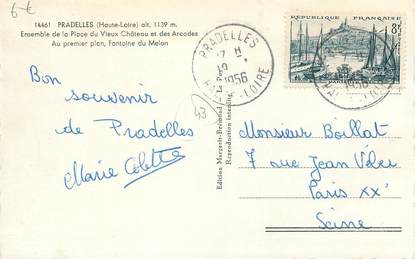 6-€
14461 PRADELLES (Haute-Loire) alt. 1139 m.
Ensemble de la Place du Vieux Château et des Arcades
Au premier plan, Fontaine du Melon
Bon
souvenir
de Pradelles
Marie Colette
43
Edition Margerit-Brémond - Le Puy
Reproduction interdite
PRADELLES
17 H
19
1956
HTE-LOIRE
REPUBLIQUE FRANÇAISE
8F
Monsieur Boillat
7 rue Jean Vélu
Paris XXe
Seine